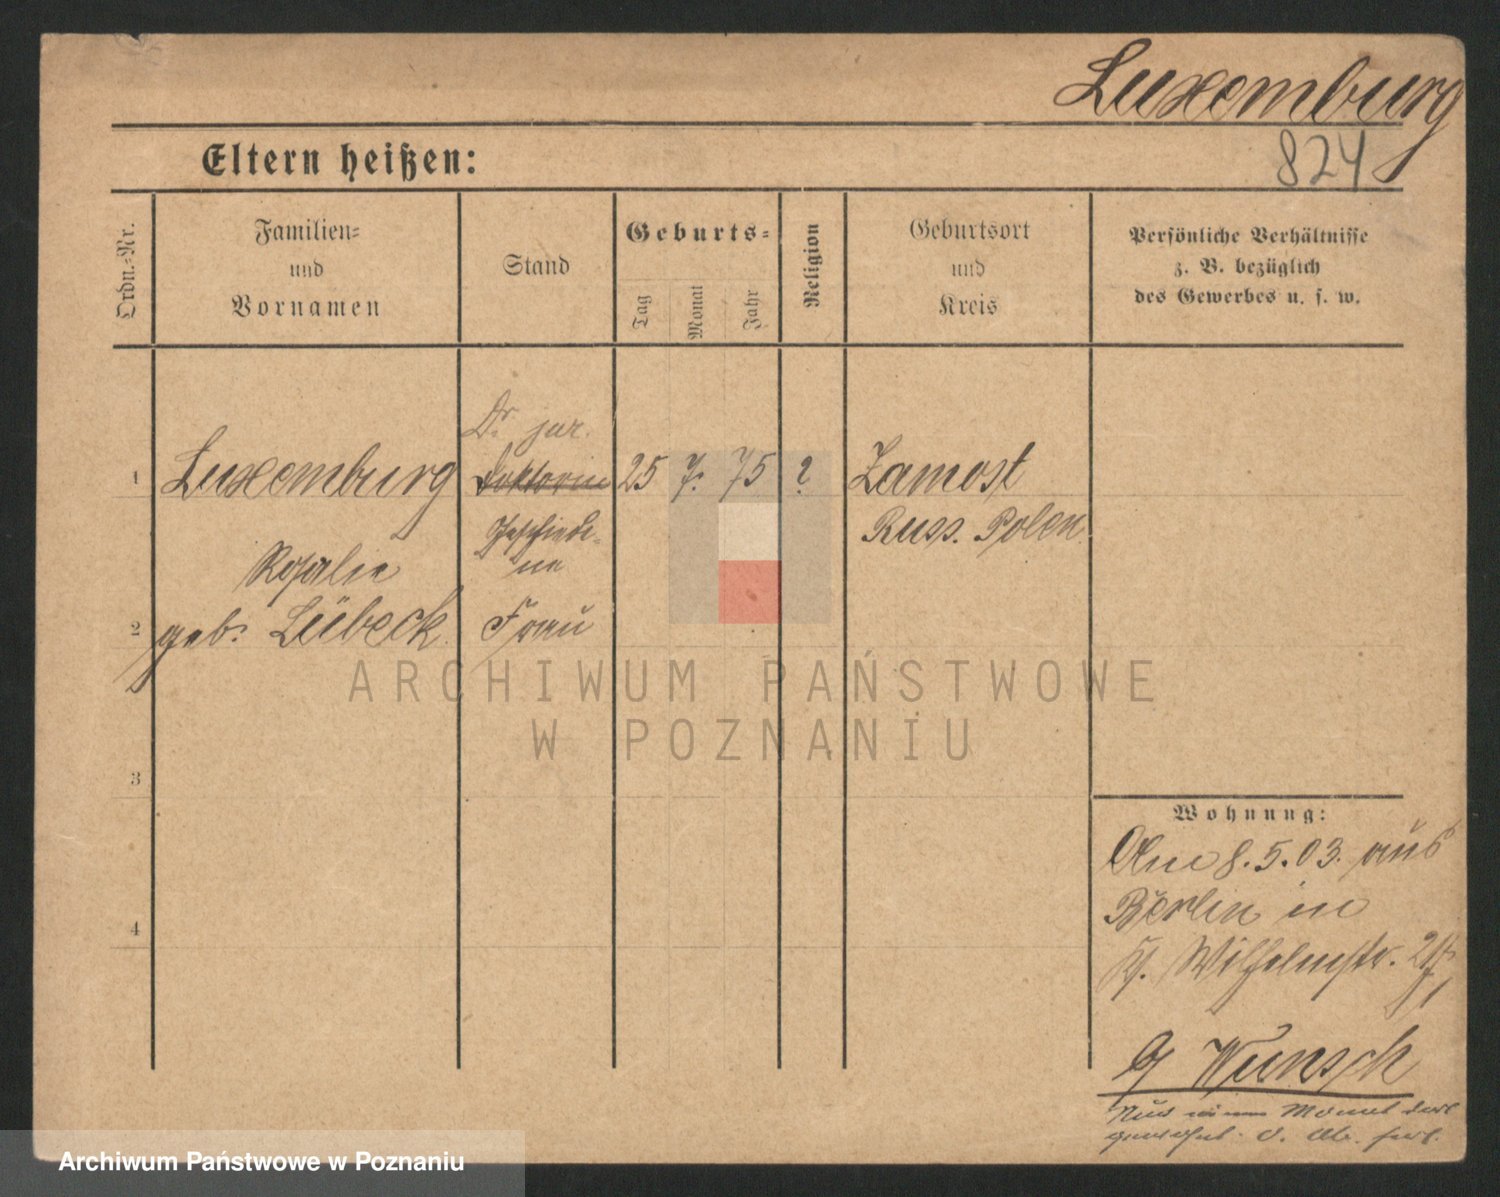 Luxemburg
824
Eltern heißen:
Ordn.-Nr.
Familien-
und
Vornamen
Stand
Geburts-
Tag
Monat
Jahr
Religion
Geburtsort
und
Kreis
Persönliche Verhältnisse
z. B. bezüglich
des Gewerbes u. s. w.
Dr. jur.
1 Luxemburg Doktorin 25 7. 75 ? Zamost
Geschiede- Russ. Polen
Rosalie ne
2 geb. Lübeck Frau
ARCHIWUM PAŃSTWOWE
W POZNANIU
3
Wohnung:
Am 8.5.03. aus
Berlin in
4
Wilhelmstr.
b/ Wunsch
Nur einen Monat dort
Archiwum Państwowe w Poznaniu